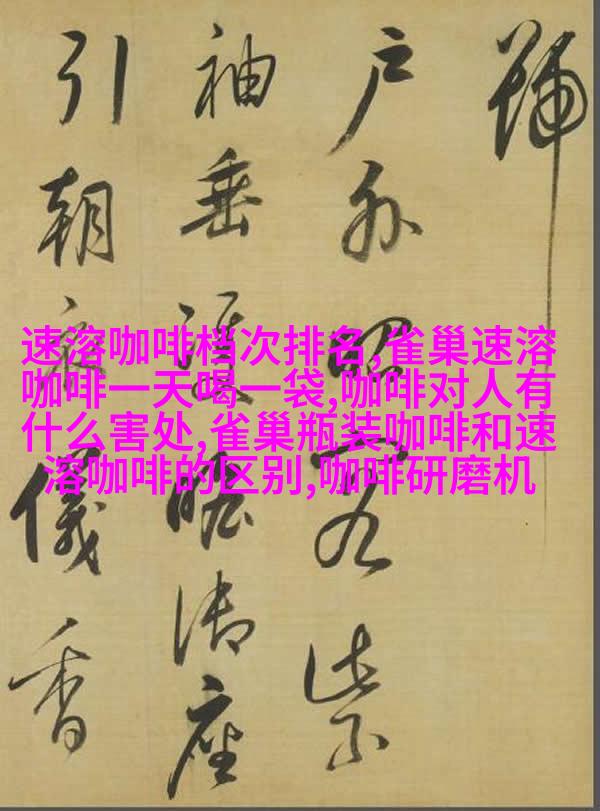 號
戶外昭容紫
袖垂雙瞻御座
引朝儀香
速溶咖啡档次排名,雀巢速溶
咖啡一天喝一袋,咖啡对人有
什么害处,雀巢瓶装咖啡和速
溶咖啡的区别,咖啡研磨机